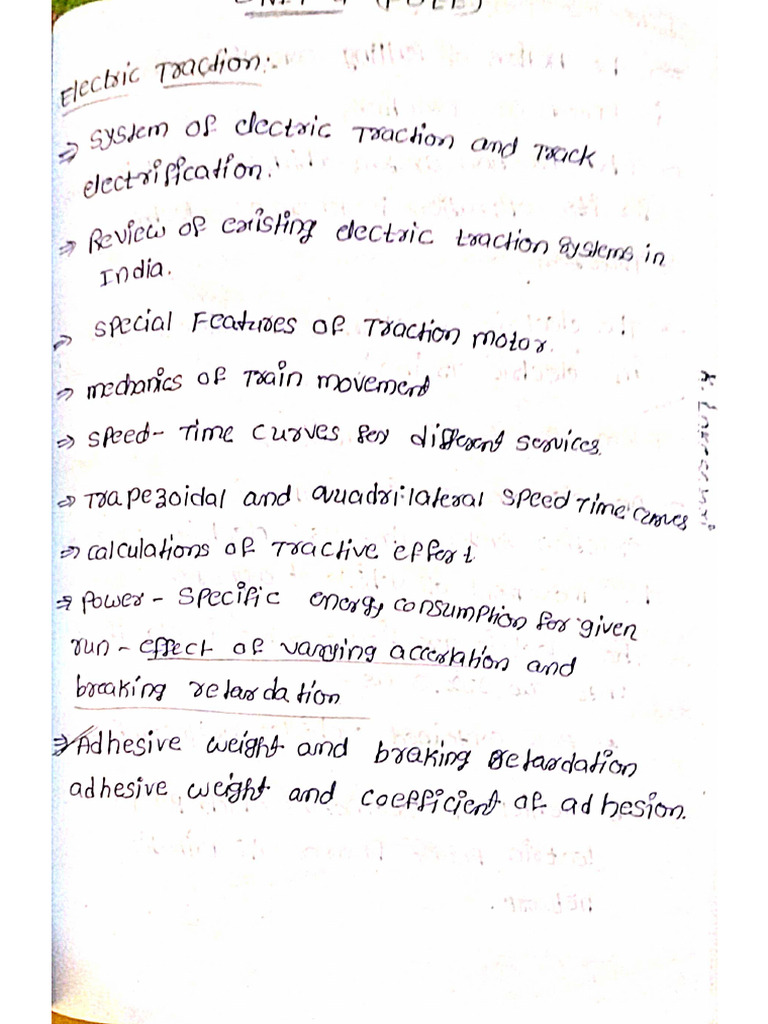 Electric Traction:-
⇒ System of electric Traction and Track
electrification.
⇒ Review of existing electric traction systems in
India.
⇒ Special Features of Traction motor.
⇒ mechanics of Train movement
⇒ speed- Time curves for different services.
⇒ Trapezoidal and quadrilateral speed Time curves
⇒ calculations of Tractive effort
⇒ power - specific energy consumption for given
run - effect of varying accerlation and
breaking retardation
⇒ Adhesive weight and braking retardation
adhesive weight and coefficient of adhesion.